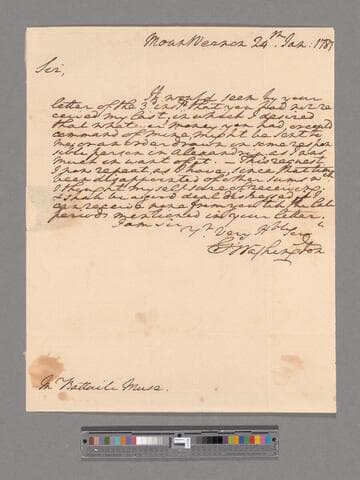 Mount Vernon 24th Jan: 1787
Sir,
It would seem by your
letter of the 3d inst that you had not re
ceived my last, in which I desired
that what money you had, or could
command of mine, might be sent to
me, or an order drawn on some respon
sible person in Alexandria, as I was
much in want of it. — This request
I now repeat, as I have, since that been
been disappointed of other sums wch
I thought myself sure of receiving
& shall be a good deal distressed if I
can receive none from you till the late
periods mentioned in your letter.
I am Sir
Yr Very Hble Ser
G Washington
Mr Battaile Muse.